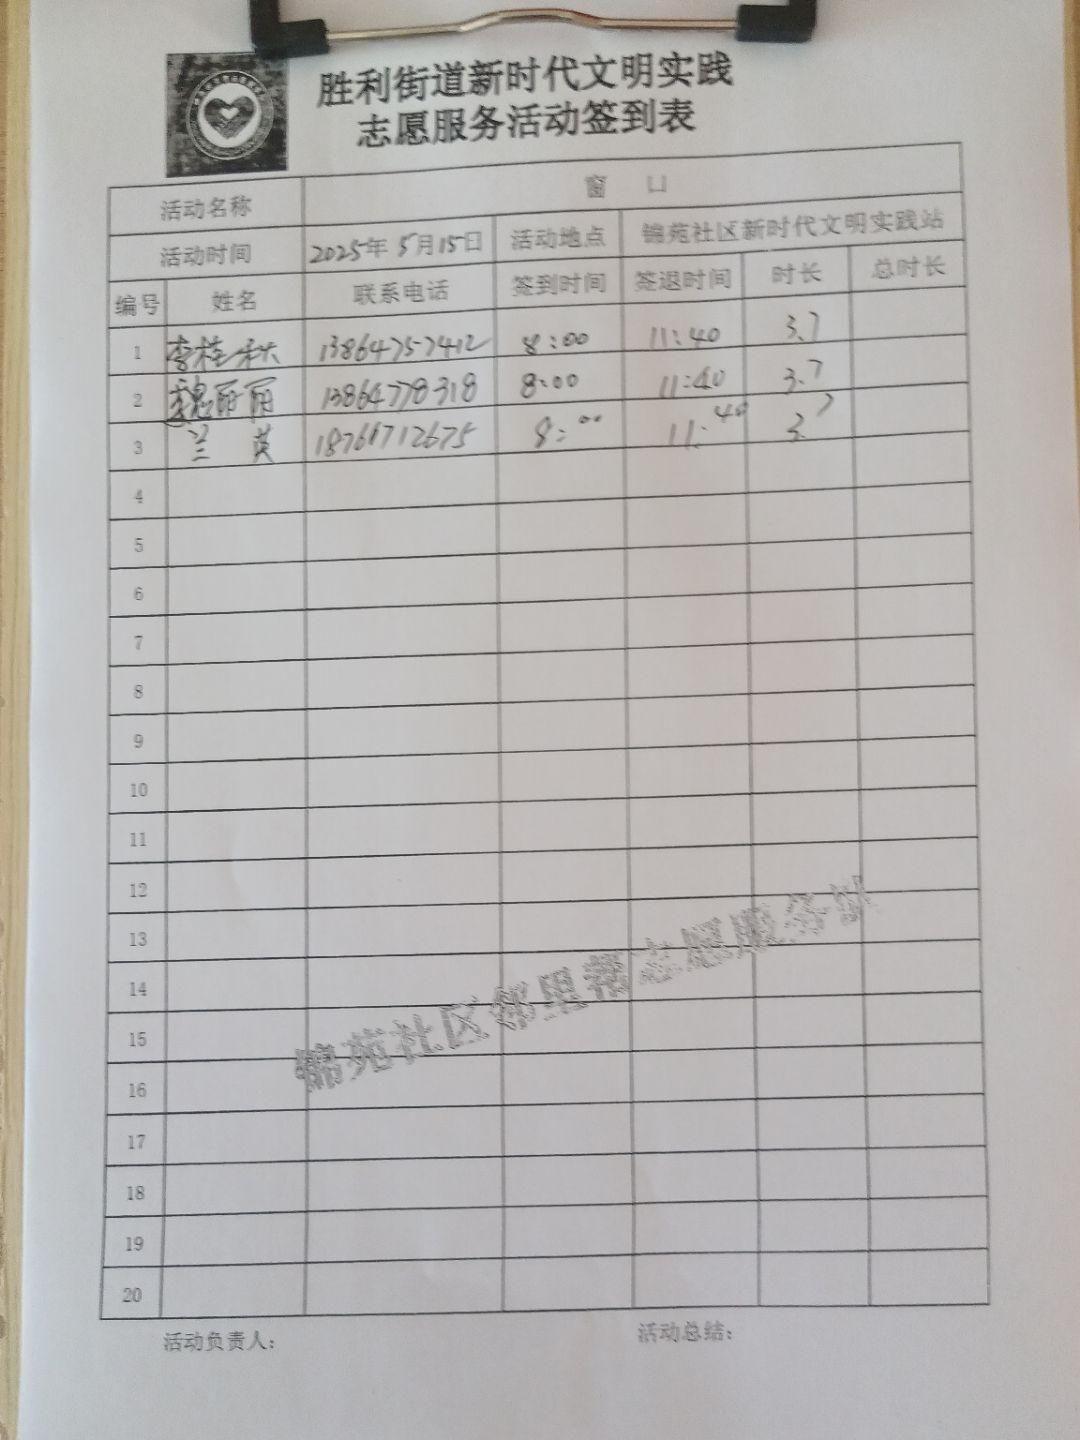 胜利街道新时代文明实践
志愿服务活动签到表
活动名称 窗 口
活动时间 2025年5月15日 活动地点 锦苑社区新时代文明实践站
编号 姓名 联系电话 签到时间 签退时间 时长 总时长
1 李桂秋 13864757412 8:00 11:40 3.7
2 魏丽丽 13864778318 8:00 11:40 3.7
3 兰英 18761712675 8:00 11:40 3.7
4
5
6
7
8
9
10
11
12
13
14
15
16
17
18
19
20
锦苑社区邻里帮志愿服务队
活动负责人: 活动总结: